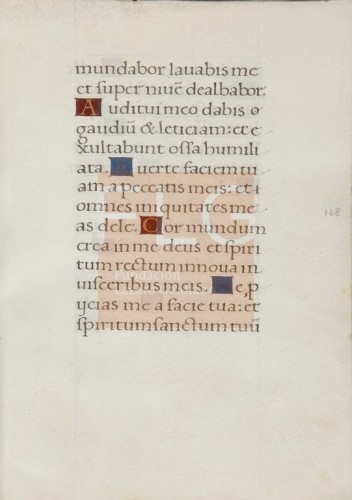 mundabor lauabis me
et super niuē dealbabor.
Auditui meo dabis g
gaudiū & leticiam: et e
xultabunt ossa humili
ata. Auerte faciem tu
am a peccatis meis: et i
omnes iniquitates me
as dele. Cor mundum
crea in me deus et spiri
tum rectum innoua in
uisceribus meis. Ne p
ijcias me a facie tua: et
spiritum sanctum tuū
128
FLG
Fundación